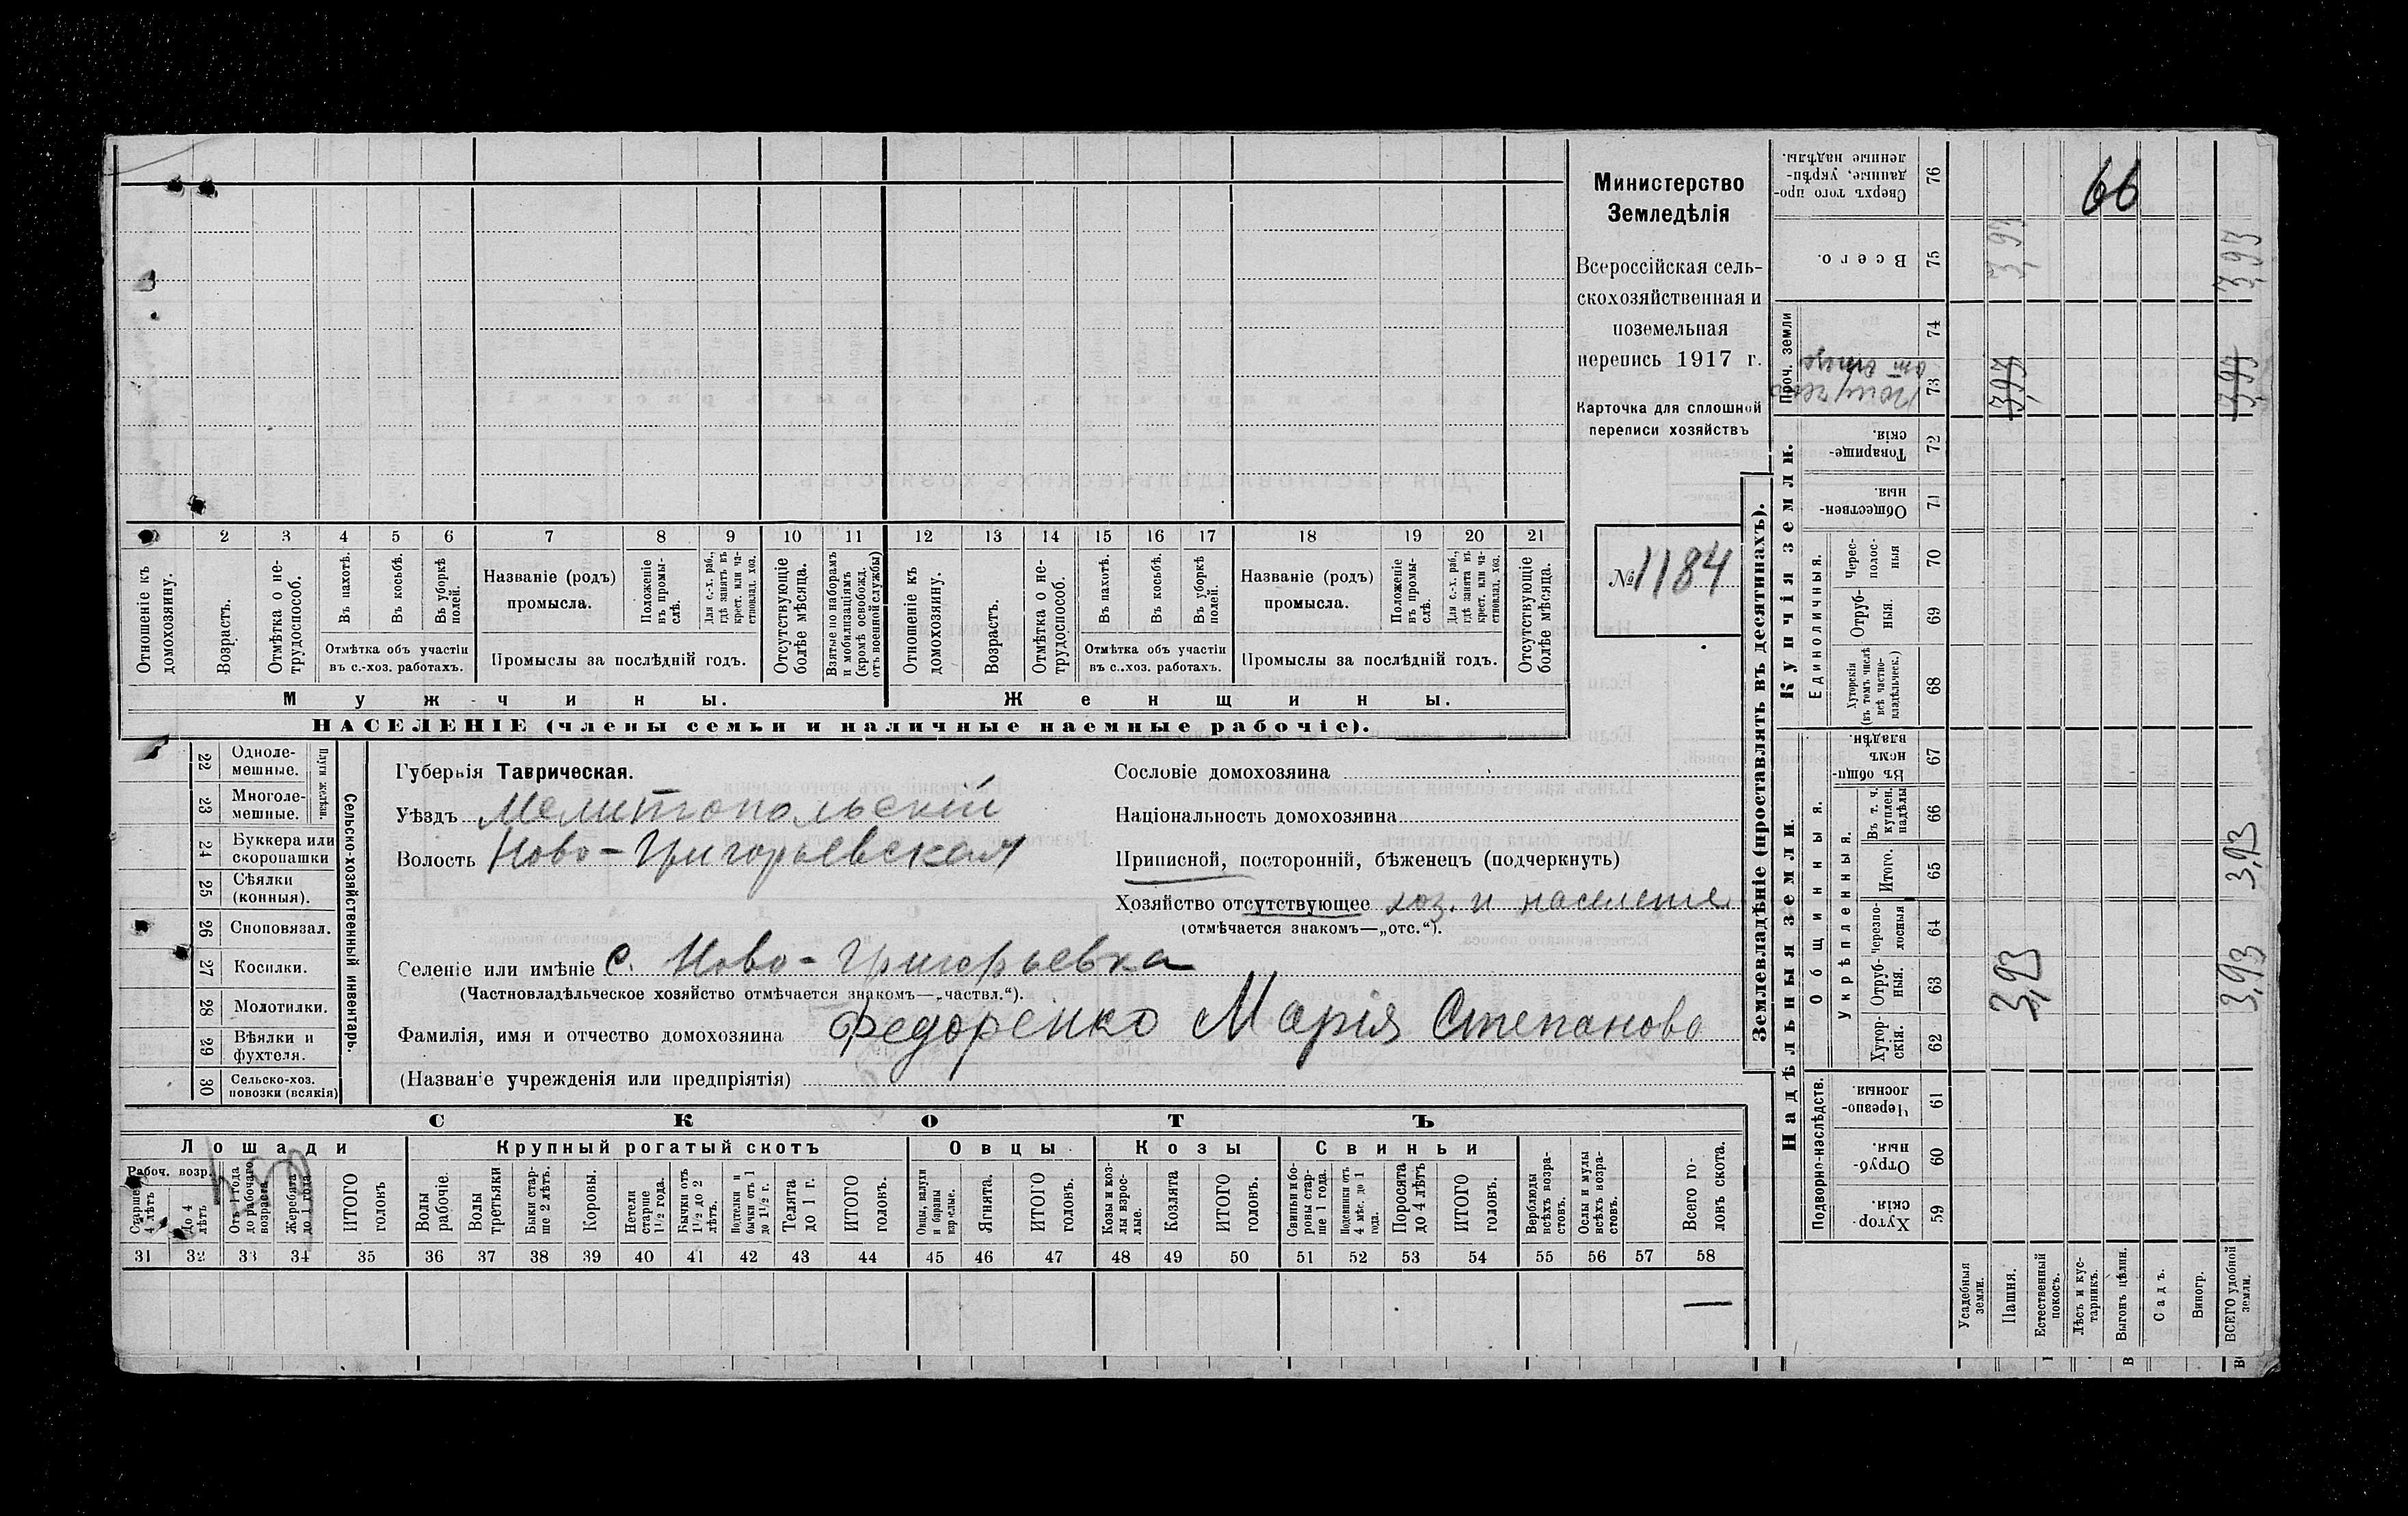 Министерство
Земледѣлія
Всероссійская сель-
скохозяйственная и
поземельная
перепись 1917 г.
Карточка для сплошной
переписи хозяйствъ
№ 1184
1 2 3 4 5 6 7 8 9 10 11 12 13 14 15 16 17 18 19 20 21
Отношеніе къ домохозяину.
Возрастъ.
Отмѣтка о не-трудоспособ.
Въ пахотѣ.
Въ косьбѣ.
Въ уборкѣ полей.
Отмѣтка объ участіи
въ с.-хоз. работахъ.
Названіе (родъ)
промысла.
Положеніе въ промы-слѣ.
Для с.-х. раб., гдѣ занятъ въ крест. или ча-стновлад. хоз.
Промыслы за послѣдній годъ.
Отсутствующіе болѣе мѣсяца.
Взятые по наборамъ и мобилизаціямъ (кромѣ освобожд. отъ военной службы)
Отношеніе къ домохозяину.
Возрастъ.
Отмѣтка о не-трудоспособ.
Въ пахотѣ.
Въ косьбѣ.
Въ уборкѣ полей.
Отмѣтка объ участіи
въ с..хоз. работахъ.
Названіе (родъ)
промысла.
Положеніе въ промы-слѣ.
Для с.-х. раб., гдѣ занята въ крест. или ча-стновлад. хоз.
Промыслы за послѣдній годъ.
Отсутствующіе болѣе мѣсяца.
Мужчины.
Женщины.
НАСЕЛЕНІЕ (члены семьи и наличные наемные рабочіе).
Сельско-хозяйственный инвентарь.
Плуги желѣзн.
22 Одноле-мешные.
23 Многоле-мешные.
24 Буккера или скоропашки
25 Сѣялки (конныя).
26 Сноповязал.
27 Косилки.
28 Молотилки.
29 Вѣялки и фухтеля.
30 Сельско-хоз. повозки (всякія)
Губернія Таврическая.
Уѣздъ Мелитопольскій
Волость Ново-Григорьевская
Сословіе домохозяина
Національность домохозяина
Приписной, посторонній, бѣженецъ (подчеркнуть)
Хозяйство отсутствующее хоз. и населеніе
(отмѣчается знакомъ—„отс.“).
Селеніе или имѣніе с. Ново-Григорьевка
(Частновладѣльческое хозяйство отмѣчается знакомъ—„частвл.“).
Фамилія, имя и отчество домохозяина Федоренко Марія Степанова
(Названіе учрежденія или предпріятія)
СКОТЪ
Лошади
Крупный рогатый скотъ
Овцы
Козы
Свиньи
Рабоч. возр.
Старше 4 лѣтъ
До 4 лѣтъ
Отъ 1 года до рабочаго возраста
Жеребята до 1 года
ИТОГО головъ
Волы рабочіе.
Волы третьяки
Быки стар-ше 2 лѣтъ.
Коровы.
Нетели старше 1½ года.
Бычки отъ 1½ до 2 лѣтъ.
Подтелки и бычки отъ 1 до 1½ г.
Телята до 1 г.
ИТОГО головъ.
Овцы, валухи и бараны взрослые.
Ягнята.
ИТОГО головъ.
Козы и коз-лы взрос-лые.
Козлята
ИТОГО головъ.
Свиньи и бо-ровы стар-ше 1 года.
Подсвинки отъ 4 мѣс. до 1 года.
Поросята до 4 лѣтъ
ИТОГО головъ.
Верблюды всѣхъ возра-стовъ.
Ослы и мулы всѣхъ возра-стовъ.
Всего го-ловъ скота.
31 32 33 34 35 36 37 38 39 40 41 42 43 44 45 46 47 48 49 50 51 52 53 54 55 56 57 58
—
Землевладѣніе (проставлять въ десятинахъ).
Надѣльныя земли.
Купчія земли.
Проч. земли
Подворно-наслѣдств.
Общинныя.
Укрѣпленныя.
Единоличныя.
Сверхъ того про-данные, укрѣп-ленные надѣлы. 76
Всего. 75
74
73
Получено от отца
Товарище-скія. 72
Обществен-ныя. 71
Черес-полос-ныя 70
Отруб-ныя. 69
Хуторскія (въ томъ числѣ всѣ частно-владѣльческ.) 68
Въ общи-номъ владѣн. 67
Въ т. ч. куплен. надѣлы 66
Итого. 65
Черезпо-лосныя 64
Отруб-ныя. 63
Хутор-скія. 62
Черезпо-лосныя. 61
Отруб-ныя. 60
Хутор-скія. 59
66
3,93
3,93
3,93
3,93
3,93
3,93
3,93
Усадебныя земли.
Пашня.
Естественный покосъ.
Лѣсъ и кус-тарникъ.
Выгонъ цѣлин.
Садъ.
Виногр.
ВСЕГО удобной земли.